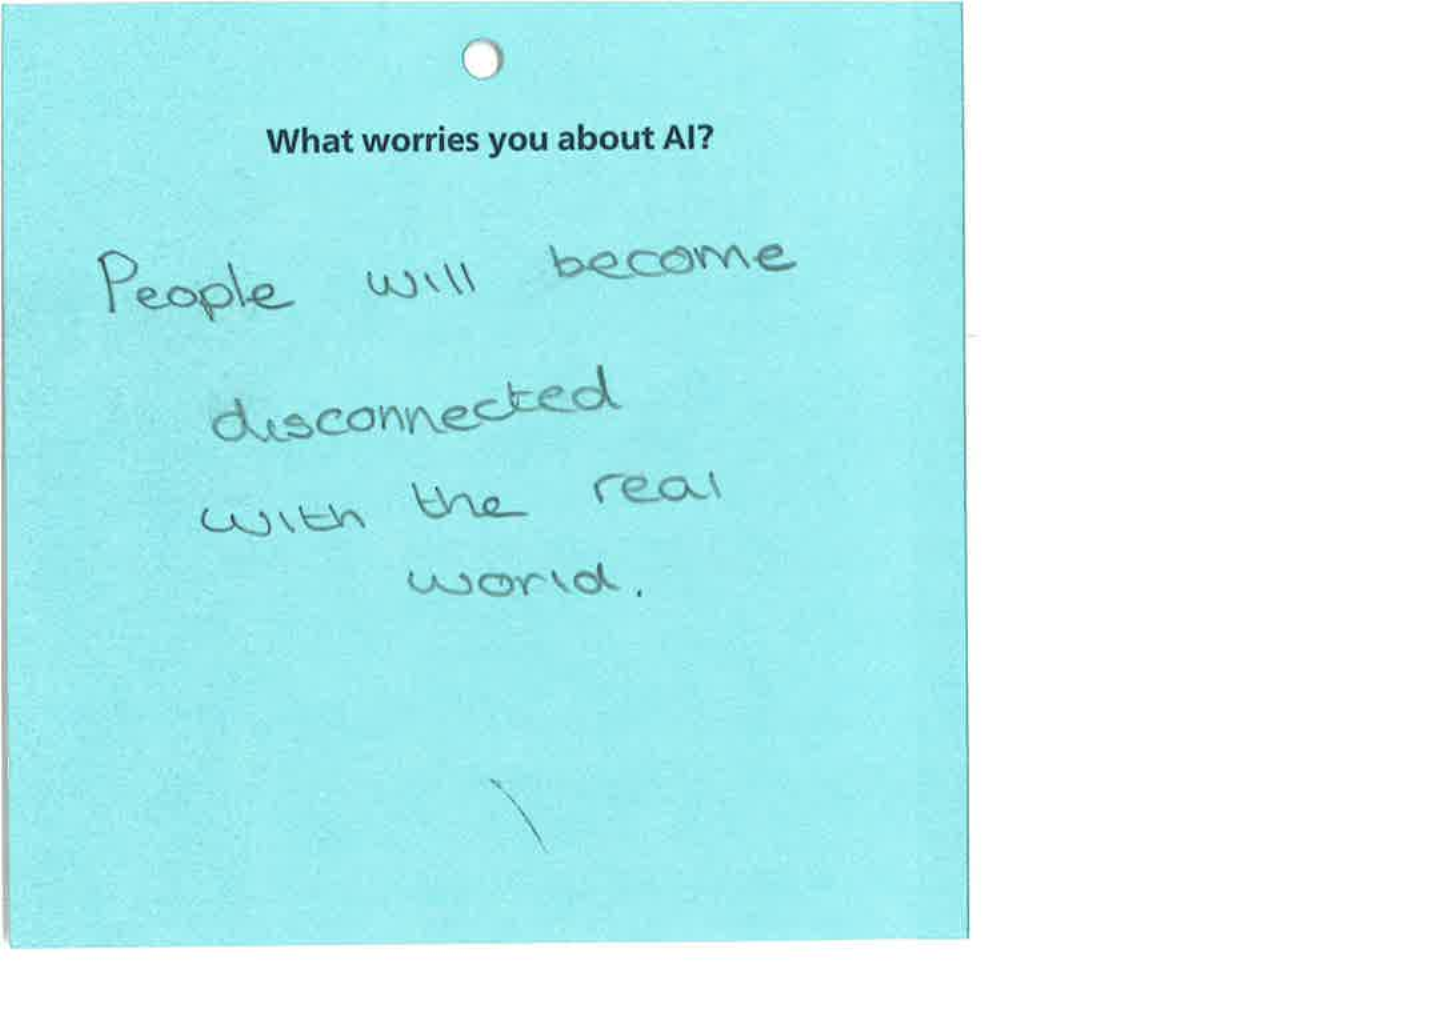 What worries you about AI?
People will become
disconnected
with the real
world.